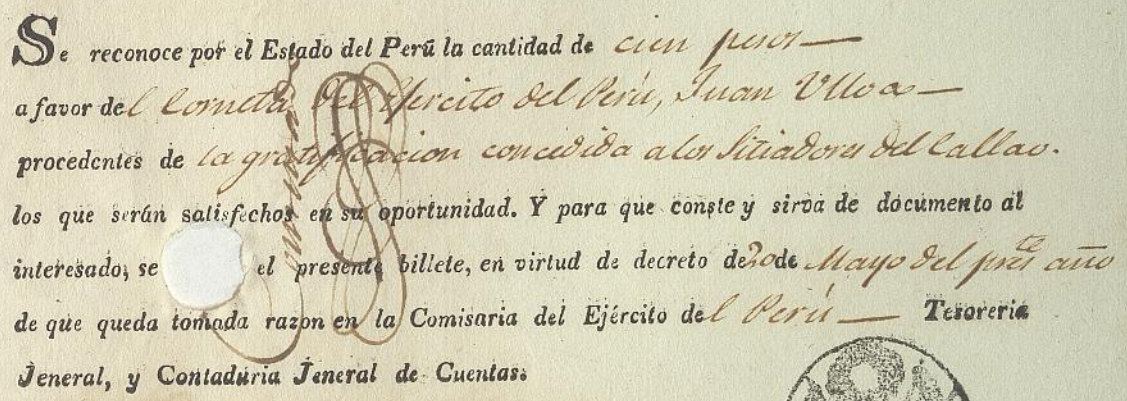 Se reconoce por el Estado del Perú la cantidad de cien pesos
a favor del Corneta del Ejercito del Perú, Juan Ulloa
procedentes de la gratificacion concedida a los Sitiadores del Callao.
los que serán satisfechos en su oportunidad. Y para que conste y sirva de documento al
interesado, se el presente billete, en virtud de decreto de 20 de Mayo del pres.te año
de que queda tomada razon en la Comisaria del Ejército del Perú Tesoreria
Jeneral, y Contaduria Jeneral de Cuentas.